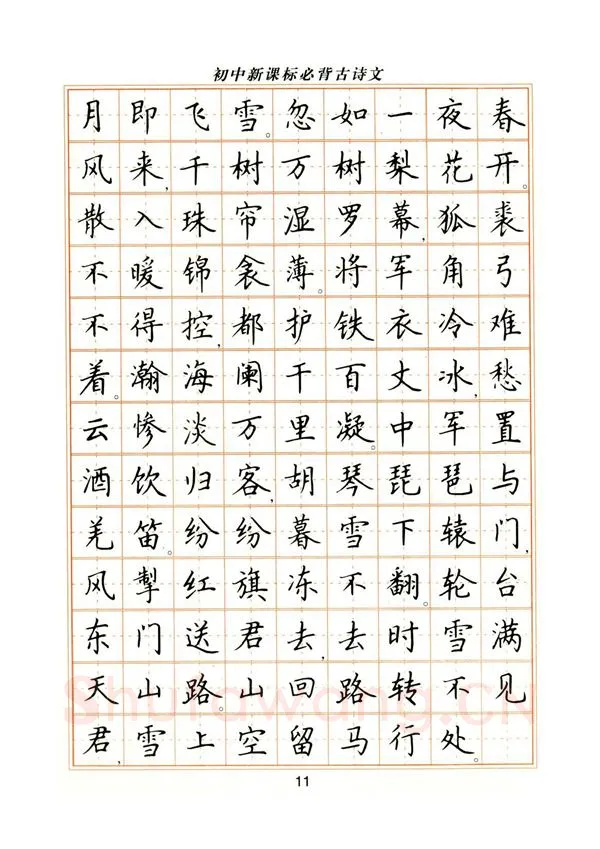 初中新课标必背古诗文
月即飞雪。忽如一夜春
风来,千树万树梨花开。
散入珠帘湿罗幕,狐裘
不暖锦衾薄。将军角弓
不得控,都护铁衣冷难
着。瀚海阑干百丈冰,愁
云惨淡万里凝。中军置
酒饮归客,胡琴琵琶与
羌笛。纷纷暮雪下辕门,
风掣红旗冻不翻。轮台
东门送君去,去时雪满
天山路。山回路转不见
君,雪上空留马行处。
Shufawang.CN
11